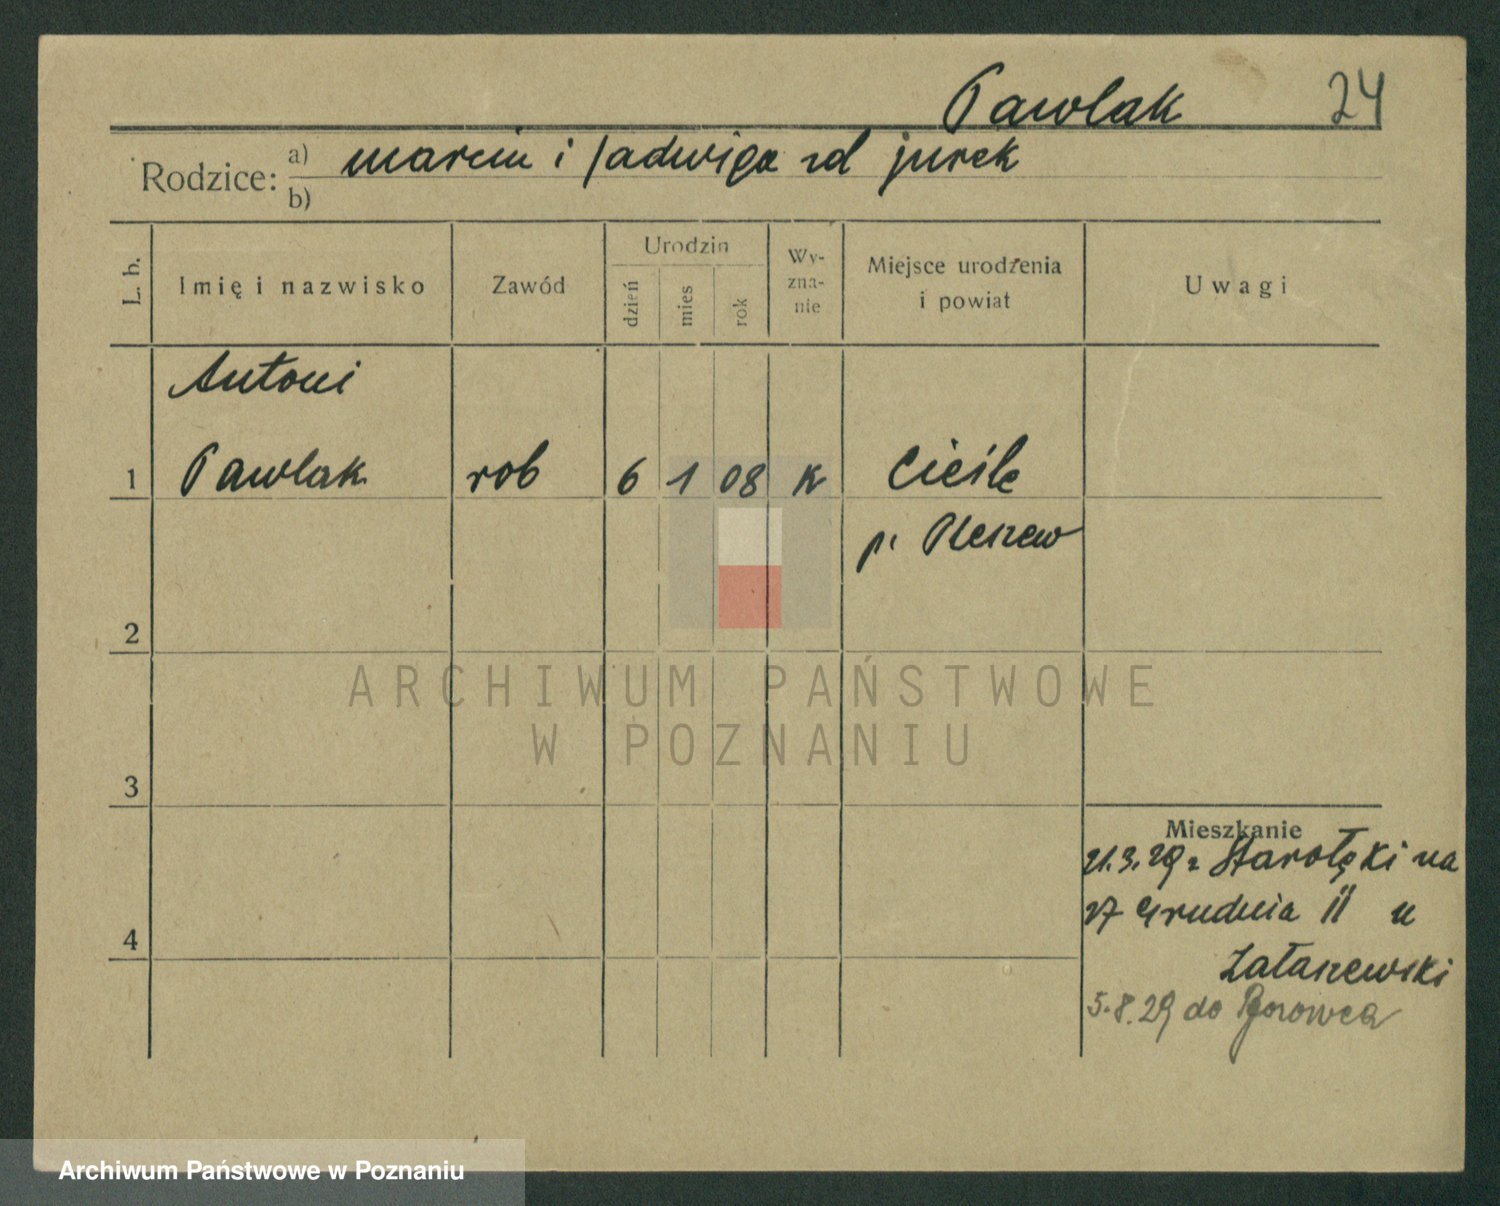 Pawlak 24
Rodzice: a) Marcin i Jadwiga zd Jurek
b)
L. b. Imię i nazwisko Zawód Urodzin dzień mies rok Wy-zna-nie Miejsce urodzenia i powiat Uwagi
Antoni
1 Pawlak rob 6 1 08 K Cieśle
p. Pleszew
2
ARCHIWUM PAŃSTWOWE
W POZNANIU
3
Mieszkanie
21.3.29 z Starołęki na
27 Grudnia 11 u
4
Łataszewski
5.8.29 do
Archiwum Państwowe w Poznaniu